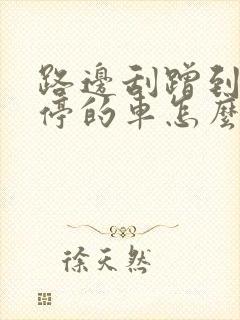 路邊刮蹭到
停的車怎麼
徐天然